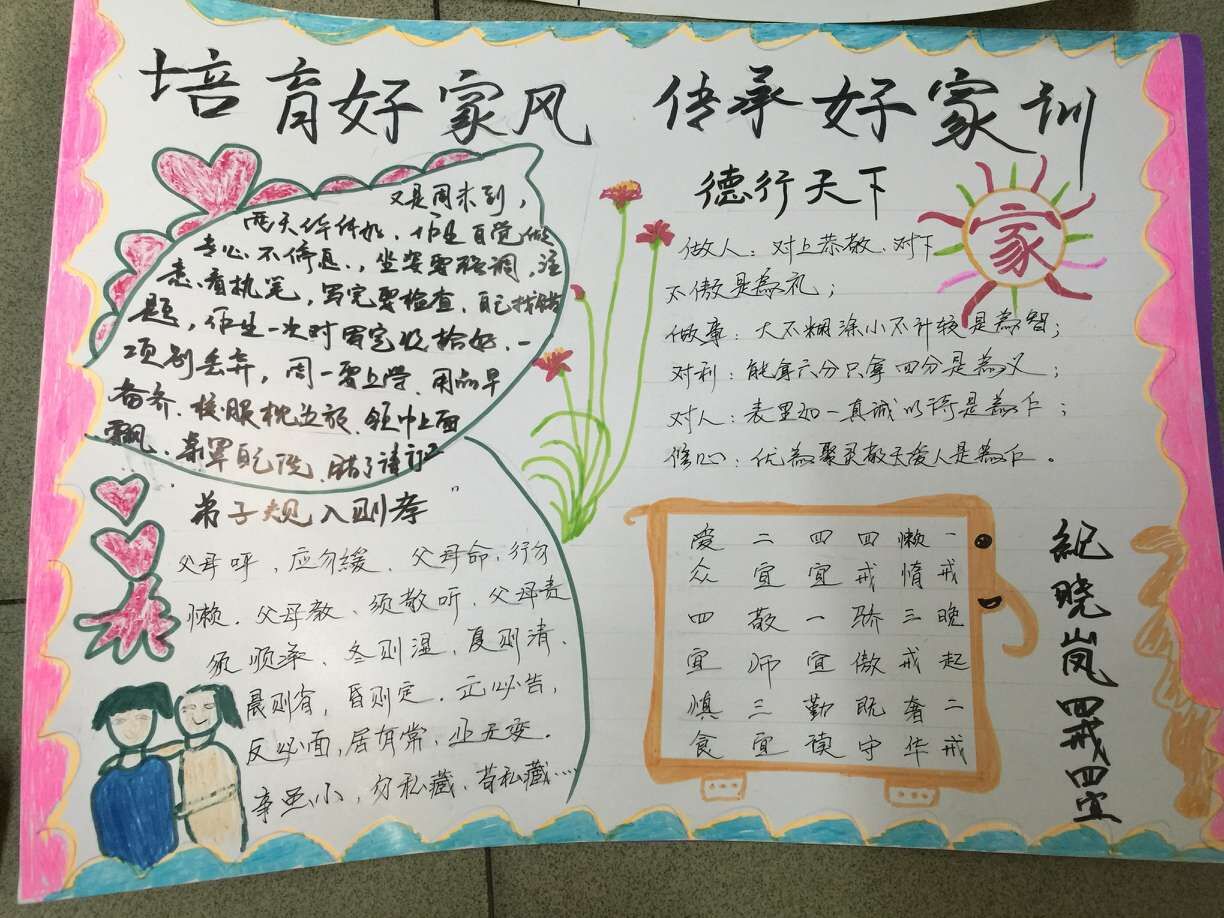 培育好家风 传承好家训
又是周末到，
两天作休加、作业自觉做
专心不停息.，坐姿要强调，注
意看执笔，写完要检查、自己找错
题，作业一次时写完收拾好、一
项别丢弃，周一要上学、用品早
备齐、校服枕边放、领巾上面
飘、亲罩自己洗、错了请订正
"弟子规入则孝"
父母呼，应勿緩、父母命，行勿
懒、父母教、须敬听、父母责
须顺承、冬则温、夏则清、
晨则省，昏则定、出必告，
反必面，居有常，业无变.
事虽小，勿私藏、苟私藏…
德行天下
做人：对上恭敬、对下
不傲是為礼；
做事：大不糊涂小不计较是為智；
对利：能拿六分只拿四分是為义；
对人：表里如一真诚以待是為仁；
修心：优為聚灵敬天爱人是為仁。
家
纪晓岚四戒四宜
一戒晚起二戒
懒惰三戒奢华
四戒骄傲既守
四宜一宜勤读
二宜敬师三宜
爱众四宜慎食